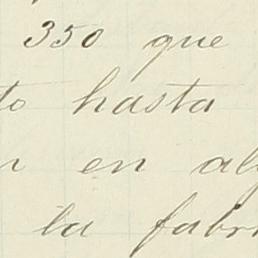 350 que
to hasta
n en alg
la fabri